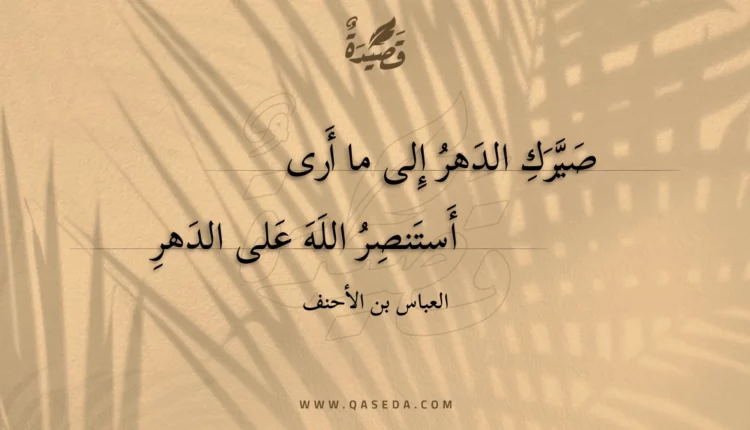 قَصِيْدَةٌ
صَيَّرَكِ الدَهرُ إِلى ما أَرى
أَستَنصِرُ اللَهَ عَلى الدَهرِ
العباس بن الأحنف
WWW.QASEDA.COM